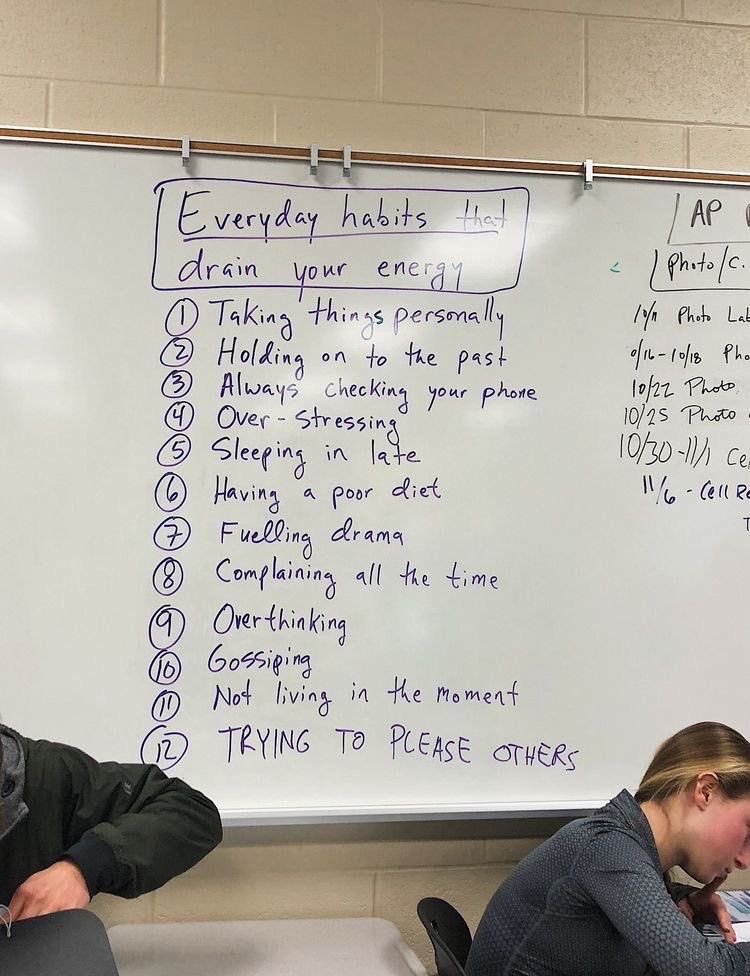 Everyday habits that
drain your energy
1 Taking things personally
2 Holding on to the past
3 Always checking your phone
4 Over-stressing
5 Sleeping in late
6 Having a poor diet
7 Fuelling drama
8 Complaining all the time
9 Overthinking
10 Gossiping
11 Not living in the moment
12 TRYING TO PLEASE OTHERS
AP
Photo/C.
Photo Lab
10/18
10/22 Photo
10/25 Photo
10/30-11/1
11/6 - Cell